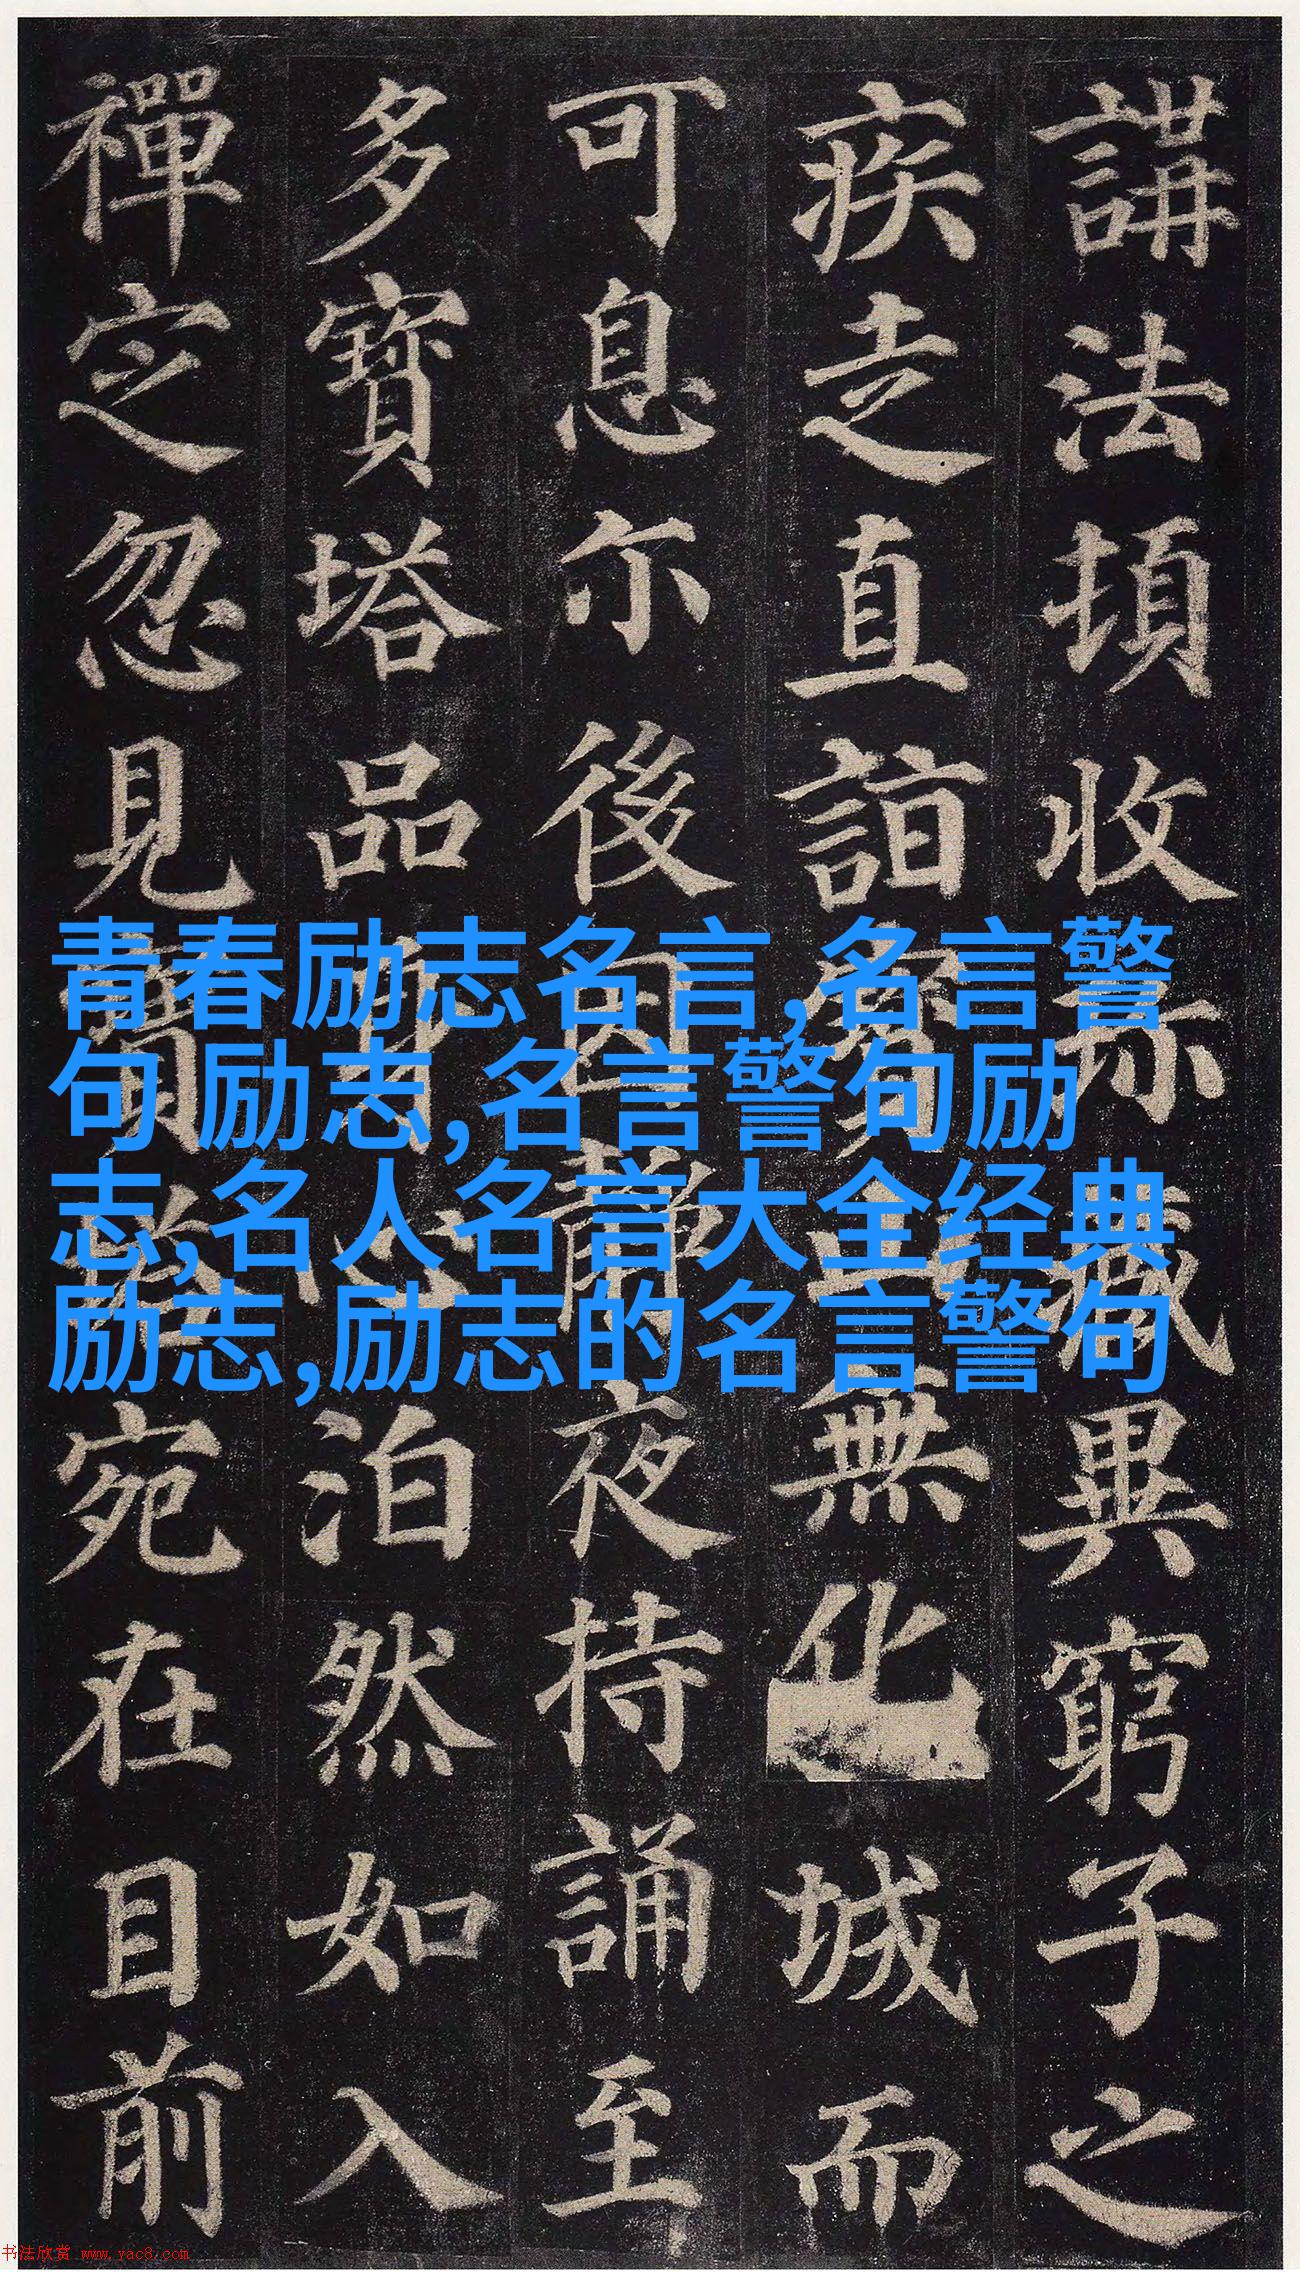 講法頓收珎藏異窮子之
疾走直詣寶山無化城而
可息尒後因靜夜持誦至
多寶塔品身心泊然如入
禪定忽見寶塔宛在目前
青春励志名言,名言警
句 励志,名言警句励
志,名人名言大全经典
励志,励志的名言警句
书法欣赏 www.yac8.com